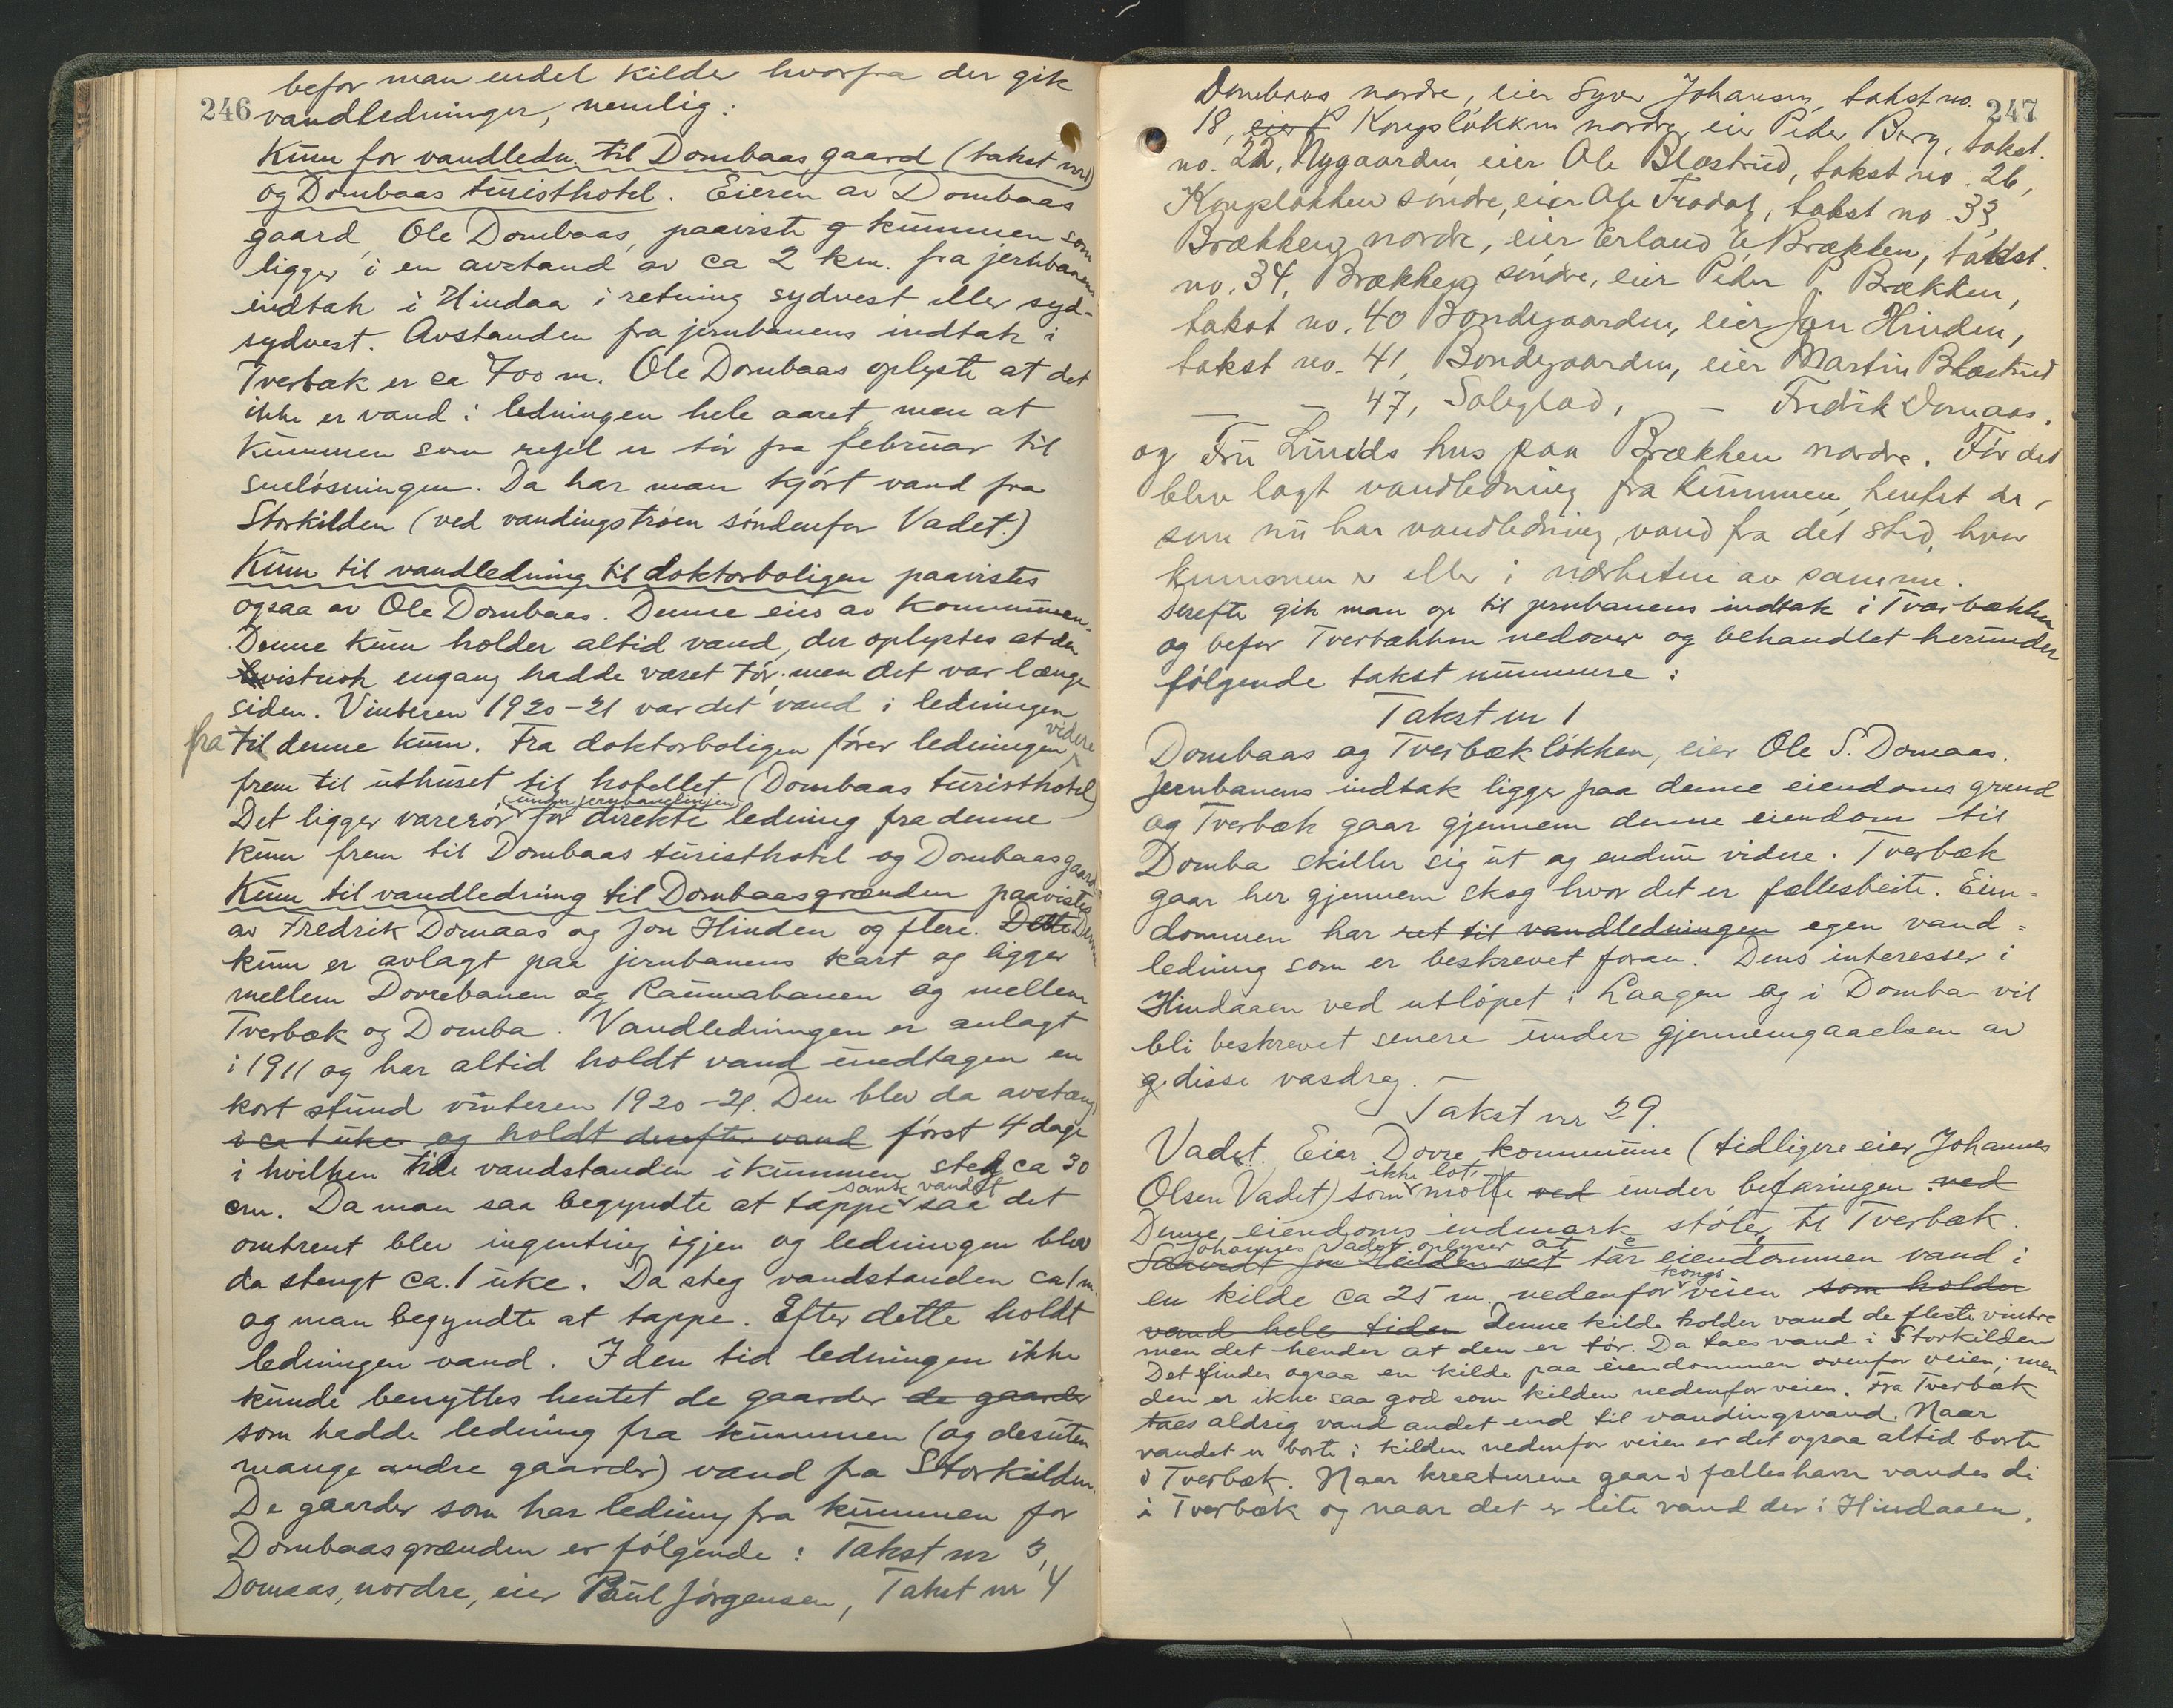 246
befor man endel kilder hvorfra der gik
vandledninger, nemlig:
Kum for vandledn. til Dombaas gaard (takst nr 1)
og Dombaas turisthotel. Eieren av Dombaas
gaard, Ole Dombaas, paaviste kummen som
ligger i en avstand av ca 2 km. fra jernbanens
indtak i Hindaa i retning sydvest eller syd-
sydvest. Avstanden fra jernbanens indtak i
Tverbæk er ca 700 m. Ole Dombaas oplyste at det
ikke er vand i ledningen hele aaret, men at
kummen som regel er tør fra februar til
sneløsningen. Da har man kjørt vand fra
Storkilden (ved vandingstrøen søndenfor Vadet.)
Kum til vandledning til doktorboligen paavistes
ogsaa av Ole Dombaas. Denne eies av kommunen.
Denne kum holder altid vand, der oplystes at den
visstnok engang hadde været tør, men det var længe
siden. Vinteren 1920-21 var det vand i ledningen
fra til denne kum. Fra doktorboligen fører ledningen videre
frem til uthuset til hotellet (Dombaas turisthotel)
Det ligger varerør (under jernbanelinjen) for direkte ledning fra denne
kum frem til Dombaas turisthotel og Dombaas gaard
Kum til vandledning til Dombaasgrænden paavistes
av Fredrik Domaas og Jon Hinden og flere. Dette Denne
kum er avlagt paa jernbanens kart og ligger
mellem Dovrebanen og Raumabanen og mellem
Tverbæk og Domba. Vandledningen er anlagt
i 1911 og har altid holdt vand undtagen en
kort stund vinteren 1920-21. Den blev da avstængt
i ca 1 uke og holdt derefter vand først 4 dage
i hvilken tid vandstanden i kummen steg ca 30
cm. Da man saa begyndte at tappe sank vandet saa det
omtrent blev ingenting igjen og ledningen blev
da stengt ca. 1 uke. Da steg vandstanden ca 1 m.
og man begyndte at tappe. Efter dette holdt
ledningen vand. I den tid ledningen ikke
kunde benyttes hentet de gaarder de gaarder
som hadde ledning fra kummen (og desuten
mange andre gaarder) vand fra Storkilden.
De gaarder som har ledning fra kummen for
Dombaasgrænden er følgende: Takst nr 3,
Domaas, nordre, eier Paul Jørgensen, Takst nr 4
247
Dombaas nordre, eier Syver Johansen, takst no.
18, eier P Kongsløkken nordre, eier Peder Berg, takst.
no. 22, Nygaarden, eier Ole Blæstrud, takst no. 26,
Kongsløkken søndre, eier Ole Trødal, takst no. 33,
Brækken nordre, eier Erland E. Brækken, takst.
no. 34, Brækken søndre, eier Peder P. Brækken,
takst no. 40 Bondegaarden, eier Jon Hinden,
takst no. 41, Bondegaarden, eier Martin Blæstrud
— — 47, Soleglad, — Fredrik Domaas.
og Fru Lunds hus paa Brækken nordre. Før det
blev lagt vandledning fra kummen, hentet de,
som nu har vandledning, vand fra det sted, hvor
kummen er eller i nærheten av samme.
Derefter gik man op til jernbanens indtak i Tverbækken
og befor Tverbækken nedover og behandlet herunder
følgende takst nummere:
Takst nr 1
Dombaas og Tverbækløkken, eier Ole S. Domaas.
Jernbanens indtak ligger paa denne eiendoms grund
og Tverbæk gaar gjennem denne eiendom til
Domba skiller sig ut og endnu videre. Tverbæk
gaar her gjennem skog hvor det er fællesbeite. Eien-
dommen har ret til vandledningen egen vand-
ledning som er beskrevet foran. Dens interesser i
Hindaaen ved utløpet i Laagen og i Domba vil
bli beskrevet senere under gjennemgaaelsen av
disse vasdrag. —
Takst nr 29.
Vadet. Eier Dovre kommune (tidligere eier Johannes
Olsen Vadet) som ikke lot møtte ved under befaringen. ved
Denne eiendoms indmark støter til Tverbæk.
Johannes Vadet oplyser at
tar eiendommen vand i
en kilde ca 25 m. nedenfor kongsveien som holder
vand hele tiden Denne kilde holder vand de fleste vintre
men det hender at den er tør. Da taes vand i Storkilden
Det findes ogsaa en kilde paa eiendommen ovenfor veien, men
den er ikke saa god som kilden nedenfor veien. Fra Tverbæk
taes aldrig vand andet end til vandingsvand. Naar
vandet er borte i kilden nedenfor veien er det ogsaa altid borte
i Tverbæk. Naar kreaturene gaar i felleshavn vandes de
i Tverbæk og naar det er lite vand der i Hindaaen.